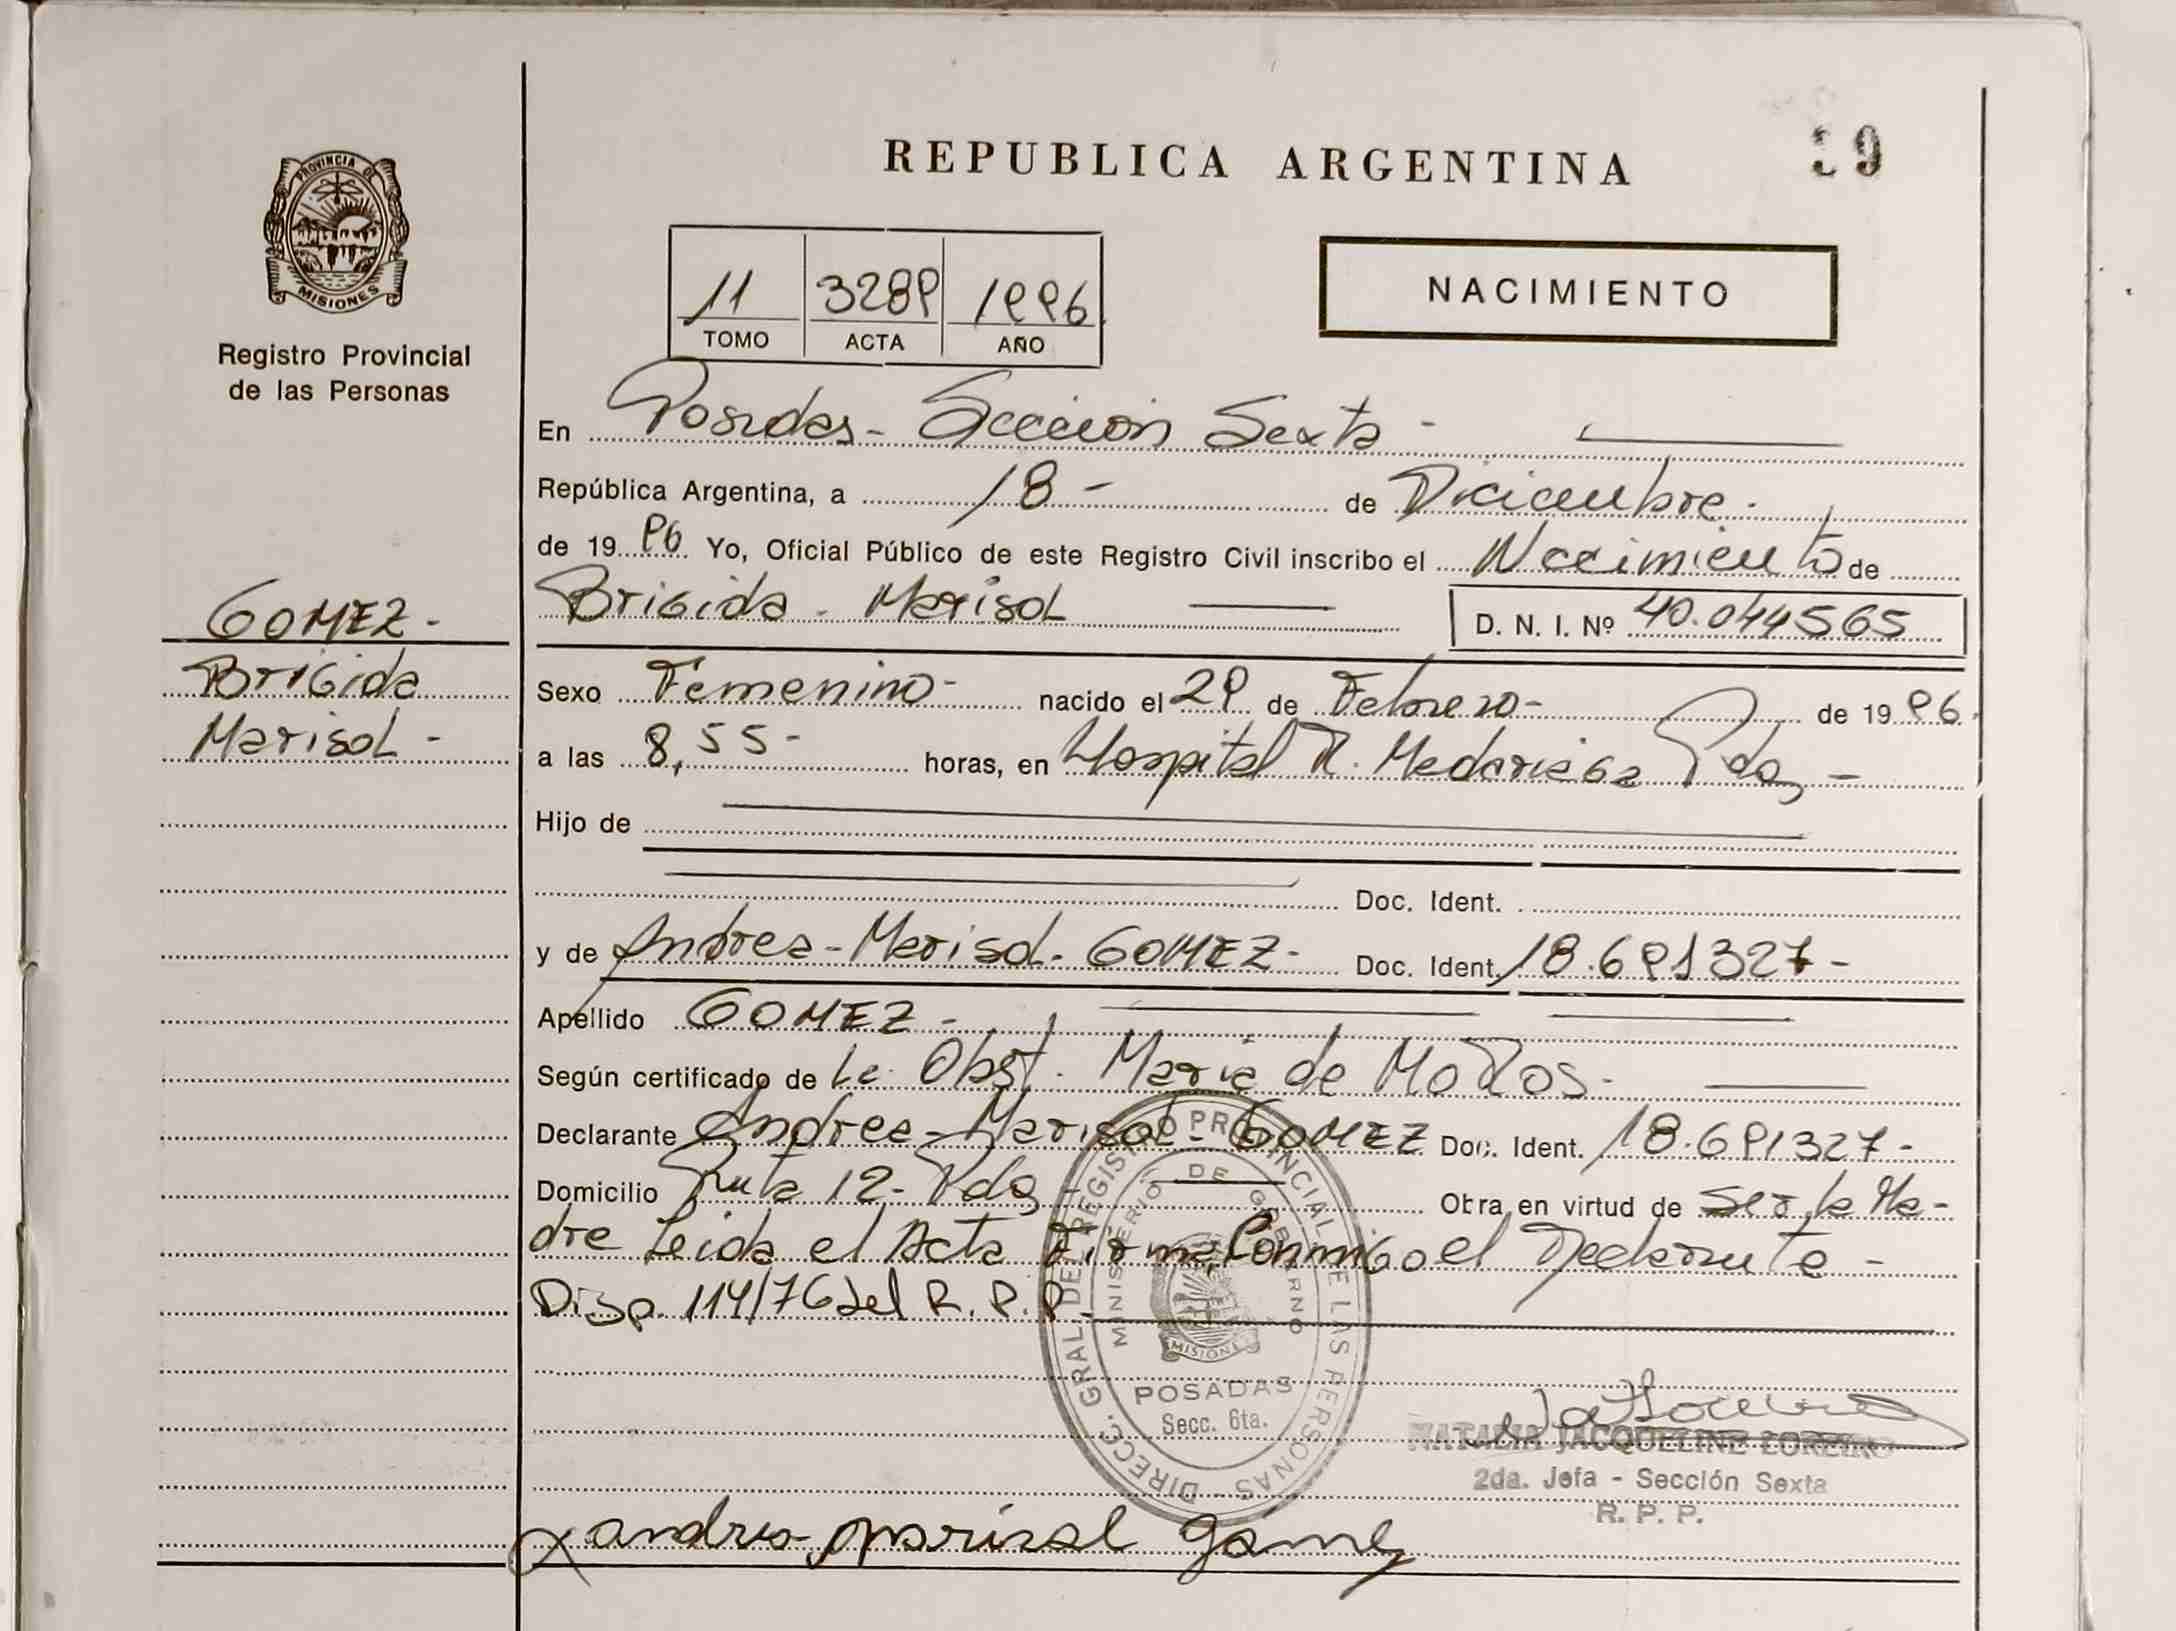 REPUBLICA ARGENTINA
39
PROVINCIA DE
MISIONES
Registro Provincial
de las Personas
11 3289 1996
TOMO ACTA AÑO
NACIMIENTO
En Posadas - Sección Sexta -
República Argentina, a 18 - de Diciembre.
de 19 96 Yo, Oficial Público de este Registro Civil inscribo el Nacimiento de
Brigida - Marisol
D. N. I. Nº 40.044565
GOMEZ -
Brigida
Marisol -
Sexo Femenino - nacido el 29 de Febrero - de 19 96.
a las 8,55 - horas, en Hospital R. Madariaga Pdas -
Hijo de
Doc. Ident.
y de Andrea - Marisol - GOMEZ - Doc. Ident. 18.691327 -
Apellido GOMEZ -
Según certificado de La Obst. Maria de
Declarante Andrea - Marisol - GOMEZ Doc. Ident. 18.691327 -
Domicilio Ruta 12 - Pdas - Obra en virtud de Ser la Ma-
dre Leida el Acta Firma Conmigo el Declarante -
Disp. 114/76 del R. P. P.
DIRECC. GRAL. DE REGISTRO PROVINCIAL DE LAS PERSONAS
MINISTERIO DE GOBIERNO
MISIONES
POSADAS
Secc. 6ta.
NATALIA JACQUELINE
2da. Jefa - Sección Sexta
R. P. P.
x andrea marisol gomez